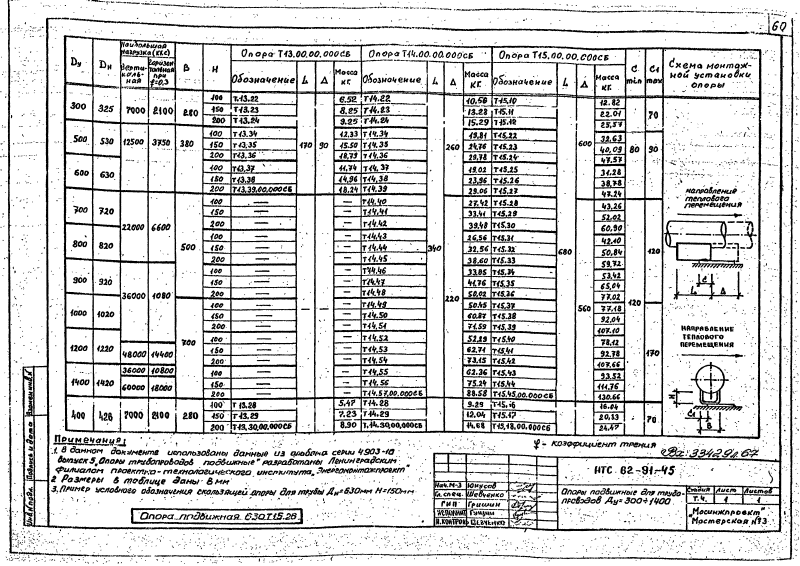 60
Dу Dн Наибольшая нагрузка (кгс) В Н Опора Т13.00.00.000СБ Опора Т14.00.00.000СБ Опора Т15.00.00.000СБ С min С1 max Схема монтажной установки опоры
Вертикальная Горизонтальная при f=0,3 Обозначение L Δ Масса кг Обозначение L Δ Масса кг Обозначение L Δ Масса кг
300 325 7000 2100 280 100 Т.13.22 170 90 6.52 Т14.22 340 260 10.56 Т15.10 680 600 12.82 80 70
150 Т13.23 8.25 Т14.23 13.28 Т15.11 22.01
200 Т13.24 9.25 Т14.24 15.29 Т15.12 25.57
500 530 12500 3750 380 100 Т13.34 12.33 Т14.34 19.81 Т15.22 32.63 90
150 Т13.35 15.50 Т14.35 24.76 Т15.23 40.09
200 Т13.36 18.79 Т14.36 29.78 Т15.24 47.57
600 630 100 Т13.37 11.74 Т14.37 19.02 Т15.25 31.28
150 Т13.38 14.96 Т14.38 23.96 Т15.26 38.78
200 Т13.39.00.000СБ 18.24 Т14.39 29.06 Т15.27 47.24
700 720 22000 6600 500 100 — — Т14.40 220 27.42 Т15.28 560 43.26 120 120
150 — — Т14.41 33.41 Т15.29 52.02
200 — — Т14.42 39.48 Т15.30 60.90
800 820 100 — — Т14.43 26.56 Т15.31 42.10
150 — — Т14.44 32.56 Т15.32 50.84
200 — — Т14.45 38.60 Т15.33 59.72
900 920 36000 1080 100 — — Т14.46 33.85 Т15.34 53.42
150 — — Т14.47 41.76 Т15.35 65.04
200 — — Т14.48 50.02 Т15.36 77.02
1000 1020 700 100 — — Т14.49 50.45 Т15.37 77.18 170
150 — — Т14.50 60.87 Т15.38 92.04
200 — — Т14.51 71.59 Т15.39 107.10
1200 1220 100 — — Т14.52 52.29 Т15.40 78.12
48000 14400 150 — — Т14.53 62.71 Т15.41 92.78
200 — — Т14.54 73.15 Т15.42 107.66
1400 1420 36000 10800 100 — — Т14.55 62.36 Т15.43 93.52
60000 18000 150 — — Т14.56 75.24 Т15.44 111.76
200 — — Т14.57.00.000СБ 88.58 Т15.45.00.000СБ 130.66
400 426 7000 2100 280 100 Т13.28 5.47 Т14.28 9.29 Т15.16 16.04 70
150 Т13.29 7.23 Т14.29 12.04 Т15.17 20.33
200 Т13.30.00.000СБ 8.90 Т.14.30.00.000СБ 14.68 Т15.18.00.000СБ 24.47
направление теплового перемещения
С L Δ
направление теплового перемещения
Н С1 В
Примечания:
1. В данном документе использованы данные из альбома серии 4.903-10
выпуск 5 „Опоры трубопроводов подвижные" разработаны Ленинградским
филиалом проектно-технологического института „Энергомонтажпроект"
2 Размеры в таблице даны в мм
3. Пример условного обозначения скользящей опоры для трубы Дн=630мм Н=150мм
Опора подвижная 630.Т15.26
φ - коэффициент трения
Вх: 33429л.67
НТС 62-91-45
Нач.М-3 Юнусов
Гл.спец. Шевченко
ГИП Гришин
Н.контроль Шевченко
Опоры подвижные для трубопроводов Ду=300÷1400
Стадия Лист Листов
Т.Ч. 1 1
"Мосинжпроект"
Мастерская №3
Инв.№подл. Подпись и дата Взам.инв.№